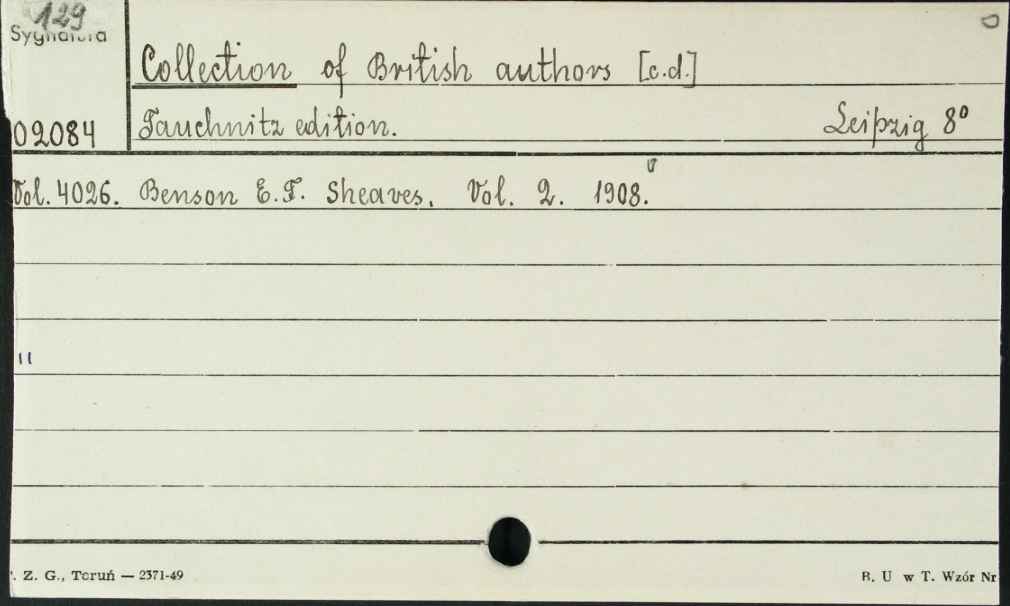 129
Sygnatura
Collection of British authors [c.d.]
02084 Tauchnitz edition. Leipzig 8°
Vol. 4026. Benson E.F. Sheaves. Vol. 2. 1908.
Z. G., Toruń — 2371-49 B. U w T. Wzór Nr